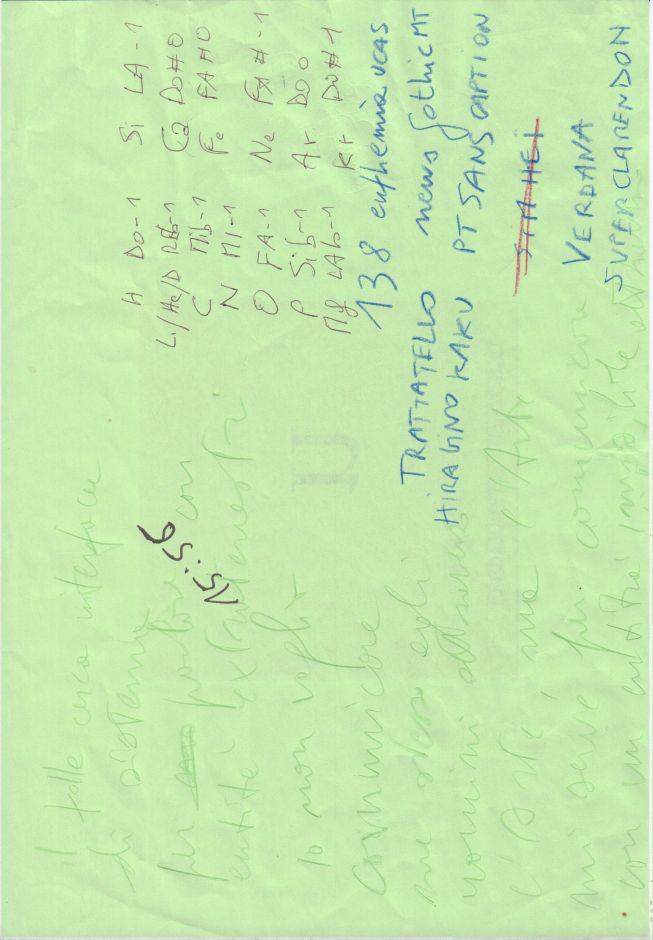 H DO-1 Si LA-1
Li/He/D REb-1 Ca DO#0
C MIb-1 Fe FA#0
N MI-1
O FA-1 Ne FA#-1
P Sib-1 Ar DO 0
Mg LAb-1 Kr DO#-1
138 euphemia UCAS
TRATTATELLO news Gothic MT
HIRAGINO KAKU PT SANS CAPTION
HEI
VERDANA
SUPERCLARENDON
15:56
il folle cerca interfacce
di sistema
per parlare con
entità extraterrestri
Io non voglio
comunicare
me stesso agli
uomini attraverso
l'Arte ma l'Arte
mi serve per comunicare
con un'entità invisibile